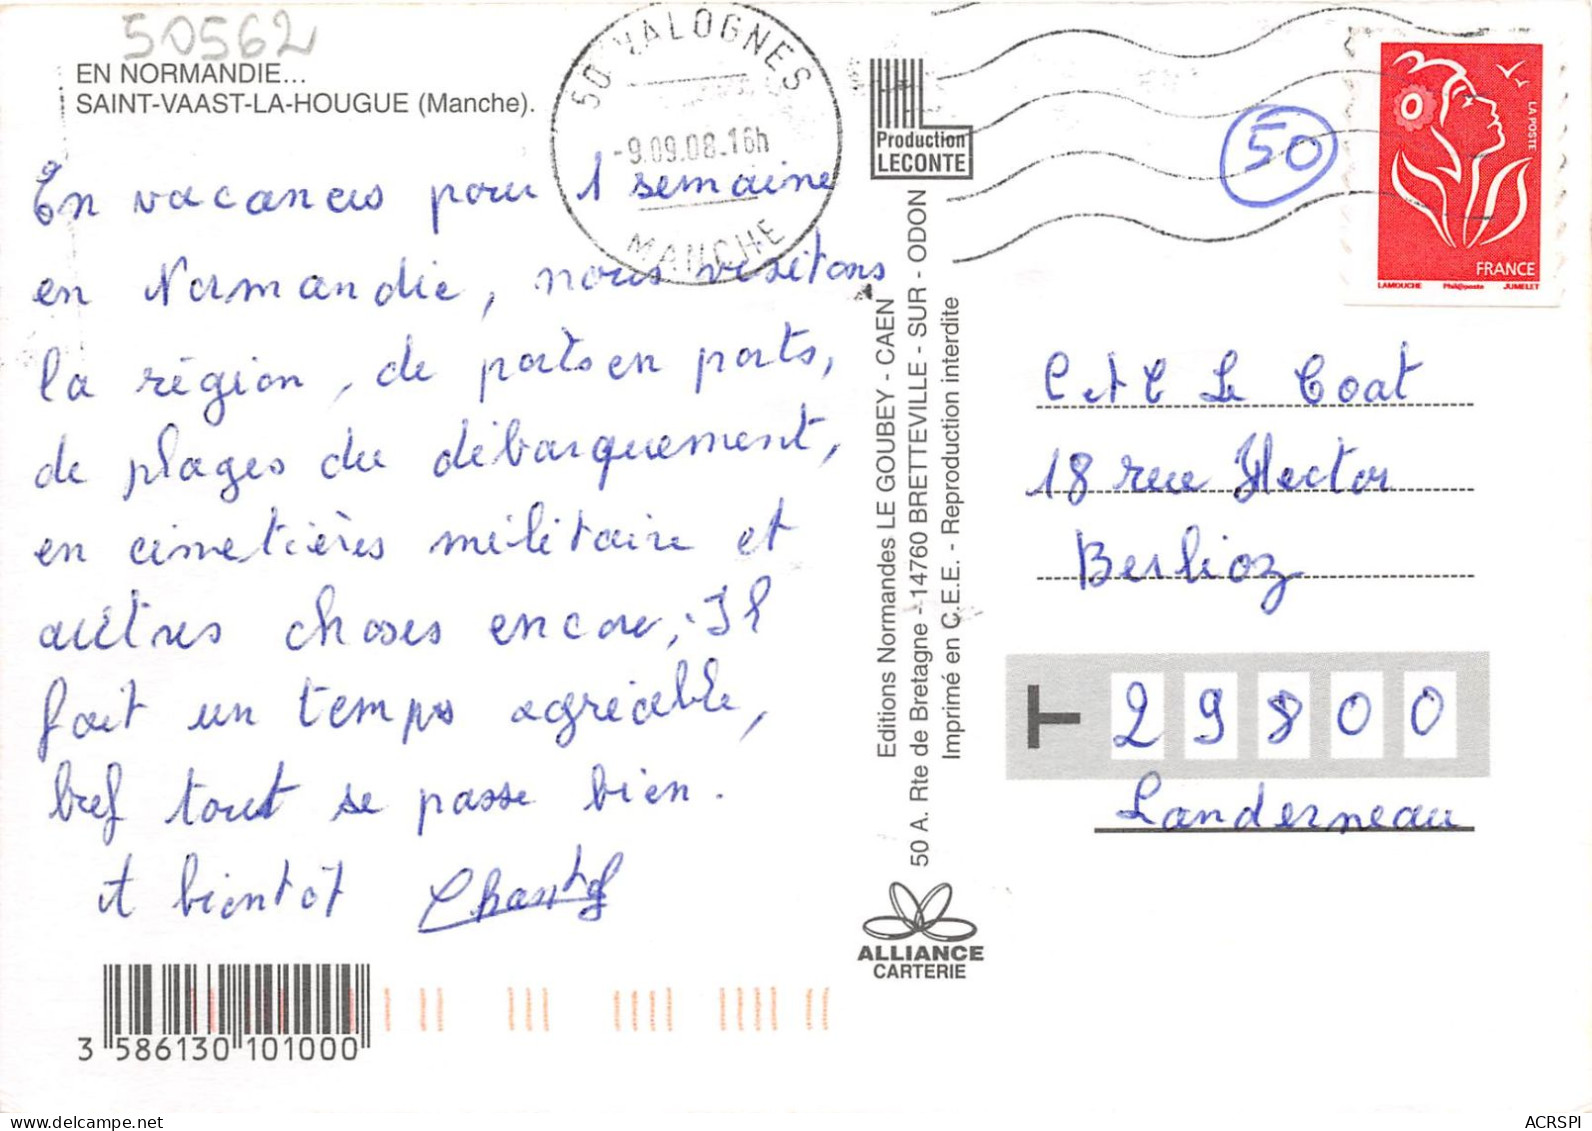 50562
EN NORMANDIE...
SAINT-VAAST-LA-HOUGUE (Manche).
En vacances pour 1 semaine
en Normandie, nous visitons
la région, de ports en ports,
de plages du débarquement,
en cimetières militaire et
autres choses encore, Il
fait un temps agréable,
bref tout se passe bien.
A bientôt Chantal
3 586130 101000
50 VALOGNES
-9.09.08.16h
MANCHE
Production
LECONTE
Editions Normandes LE GOUBEY - CAEN
50 A. Rte de Bretagne - 14760 BRETTEVILLE - SUR - ODON
Imprimé en C.E.E. - Reproduction interdite
ALLIANCE
CARTERIE
50
LA POSTE
FRANCE
LAMOUCHE Phil@poste JUMELET
C et C Le Coat
18 rue Hector
Berlioz
29800
Landerneau
ACRSPI